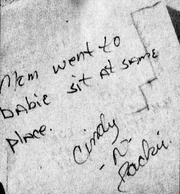 Mom went to
babie sit at same
place.
Cindy
-n-
Jackie